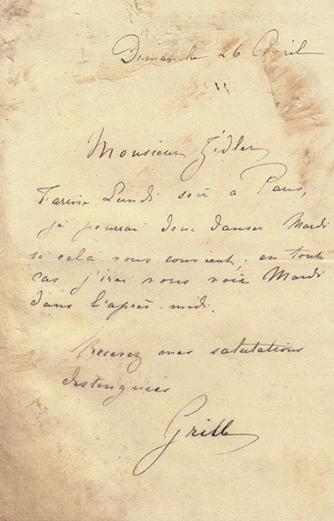 Dimanche 26 Avril
Monsieur Zidler
J'arrive Lundi soir à Paris,
je pourrai donc danser Mardi
si cela vous convient; en tout
cas j'irai vous voir Mardi
dans l'après-midi.
Recevez mes salutations
distinguées
Grille